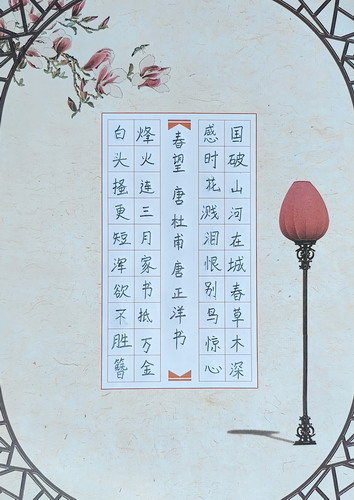 国破山河在城春草木深
感时花溅泪恨别鸟惊心
春望 唐 杜甫 唐正洋书
烽火连三月家书抵万金
白头搔更短浑欲不胜簪